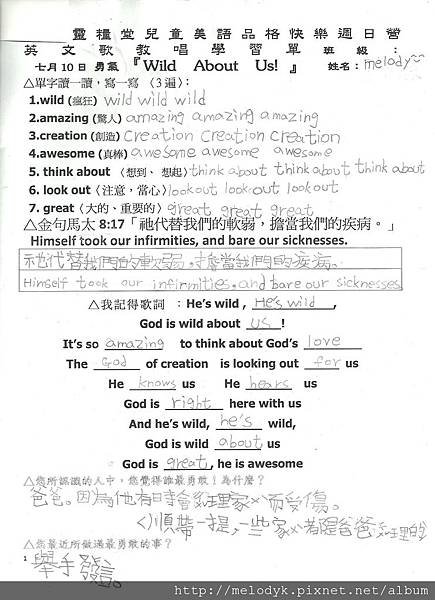 靈糧堂兒童美語品格快樂週日營
英文歌教唱學習單 班級:
七月10日 勇氣 『Wild About Us! 』 姓名:melody~
△單字讀一讀，寫一寫 〈3遍〉:
1.wild (瘋狂) wild wild wild
2.amazing (驚人) amazing amazing amazing
3.creation (創造) Creation Creation Creation
4.awesome (真棒) awesome awesome awesome
5. think about 〈想到、想起〉think about think about think about
6. look out 〈注意，當心〉look out look out look out
7. great〈大的、重要的〉great great great
△金句馬太 8:17「祂代替我們的軟弱，擔當我們的疾病。」
Himself took our infirmities, and bare our sicknesses.
祂代替我們的軟弱，擔當我們的疾病。
Himself took our infirmities, and bare our sicknesses.
△我記得歌詞 : He's wild , He's wild ,
God is wild about us !
It's so amazing to think about God's love
The God of creation is looking out for us
He knows us He hears us
God is right here with us
And he's wild, he's wild,
God is wild about us
God is great, he is awesome
△您所認識的人中，您覺得誰最勇敢！為什麼？
爸爸。因為他有時會理家 而受傷。
順帶一提，一些家 都是爸爸 理的
△您最近所做過最勇敢的事？
1 舉手發言。
http://melodyk.pixnet.net/album